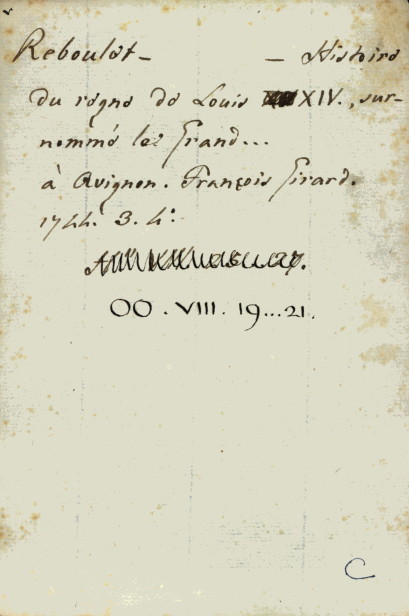 Reboulet - - Histoire
du règne de Louis XIV., sur-
nommé le Grand...
à Avignon. François Girard.
1744. 3. 4°.
OO. VIII. 19...21.
C